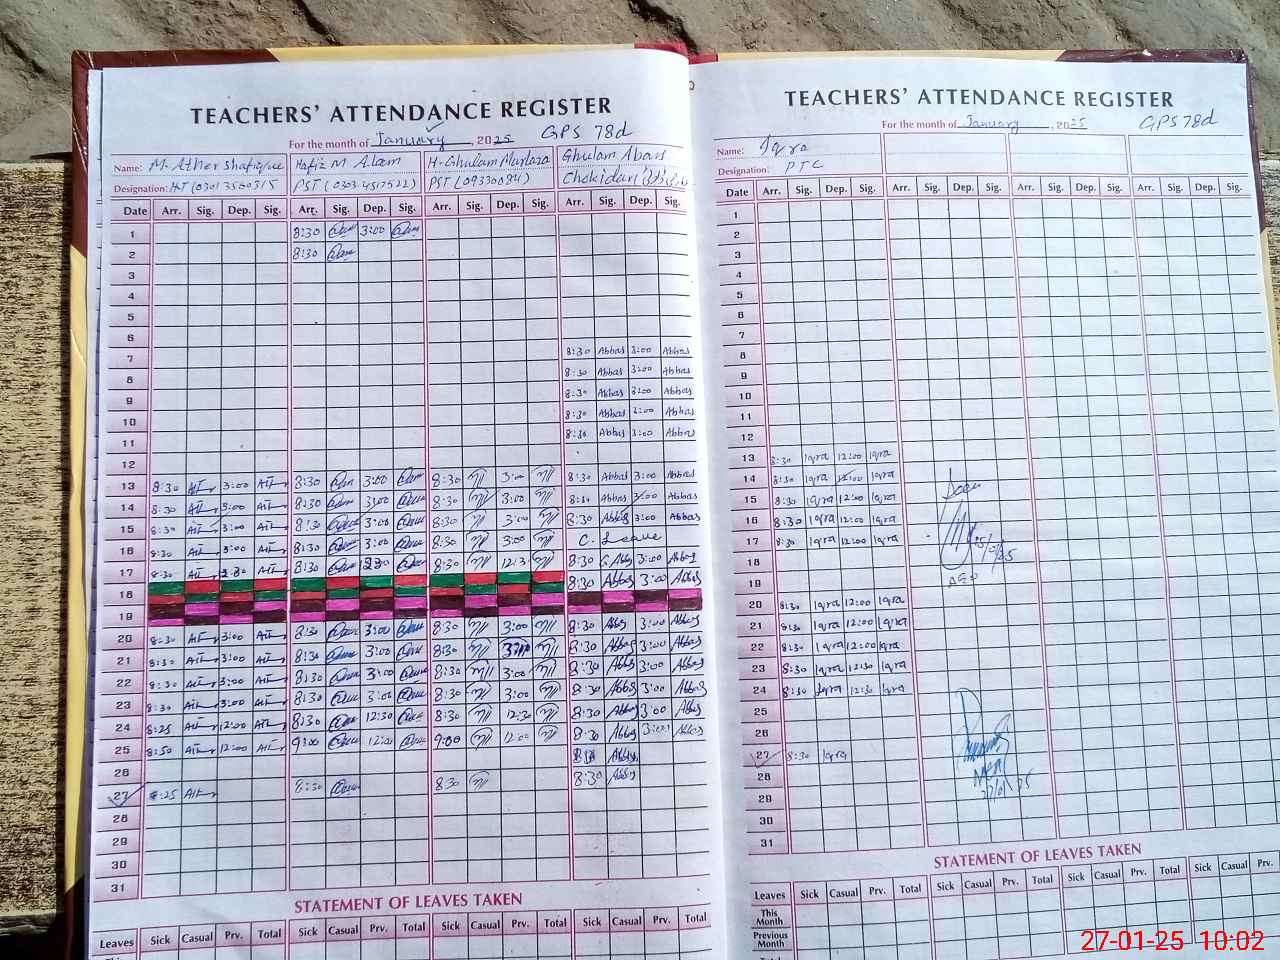 TEACHERS' ATTENDANCE REGISTER
For the month of January, 2025 GPS 78d
Name: M. Ather Shafique Hafiz M Alam H. Ghulam Murtaza Ghulam Abas
Designation: HT (03013560315 PST (0303-4517522) PST (09330084) Chokidar
Date Arr. Sig. Dep. Sig. Arr. Sig. Dep. Sig. Arr. Sig. Dep. Sig. Arr. Sig. Dep. Sig.
1 8:30 3:00
2 8:30
3
4
5
6
7 8:30 Abbas 3:00 Abbas
8 8:30 Abbas 3:00 Abbas
9 8:30 Abbas 3:00 Abbas
10 8:30 Abbas 3:00 Abbas
11 8:30 Abbas 3:00 Abbas
12
13 8:30 3:00 8:30 3:00 8:30 3:00 8:30 Abbas 3:00 Abbas
14 8:30 3:00 8:30 3:00 8:30 3:00 8:30 Abbas 3:00 Abbas
15 8:30 3:00 8:30 3:00 8:30 3:00 8:30 Abbas 3:00 Abbas
16 8:30 3:00 8:30 3:00 8:30 3:00 C. Leave
17 8:30 8:30 8:30 12:30 8:30 Abbas 3:00 Abbas
18 8:30 Abbas 3:00 Abbas
19
20 8:30 3:00 8:30 3:00 8:30 3:00 8:30 Abbas 3:00 Abbas
21 8:30 3:00 8:30 3:00 8:30 8:30 Abbas 3:00 Abbas
22 8:30 3:00 8:30 3:00 8:30 3:00 8:30 Abbas 3:00 Abbas
23 8:30 3:00 8:30 3:00 8:30 3:00 8:30 Abbas 3:00 Abbas
24 8:25 12:00 8:30 12:30 8:30 12:30 8:30 Abbas 3:00 Abbas
25 8:50 12:00 9:00 12:00 9:00 12:00 8:30 Abbas 3:00 Abbas
26 Abbas
27 8:25 8:30 8:30 8:30 Abbas
28
29
30
31
STATEMENT OF LEAVES TAKEN
Leaves Sick Casual Prv. Total Sick Casual Prv. Total Sick Casual Prv. Total Sick Casual Prv. Total
TEACHERS' ATTENDANCE REGISTER
For the month of January, 2025 GPS 78d
Name: Iqra
Designation: PTC
Date Arr. Sig. Dep. Sig. Arr. Sig. Dep. Sig. Arr. Sig. Dep. Sig. Arr. Sig. Dep. Sig.
1
2
3
4
5
6
7
8
9
10
11
12
13 8:30 Iqra 12:00 Iqra
14 8:30 Iqra 12:00 Iqra
15 8:30 Iqra 12:00 Iqra
16 8:30 Iqra 12:00 Iqra
17 8:30 Iqra 12:00 Iqra
18
19 AEO
20 8:30 Iqra 12:00 Iqra
21 8:30 Iqra 12:00 Iqra
22 8:30 Iqra 12:00 Iqra
23 8:30 Iqra 12:30 Iqra
24 8:30 Iqra 12:30 Iqra
25
26
27 8:30 Iqra
28 MEA
29 27/01/25
30
31
STATEMENT OF LEAVES TAKEN
Leaves Sick Casual Prv. Total Sick Casual Prv. Total Sick Casual Prv. Total Sick Casual
This Month
Previous Month
27-01-25 10:02